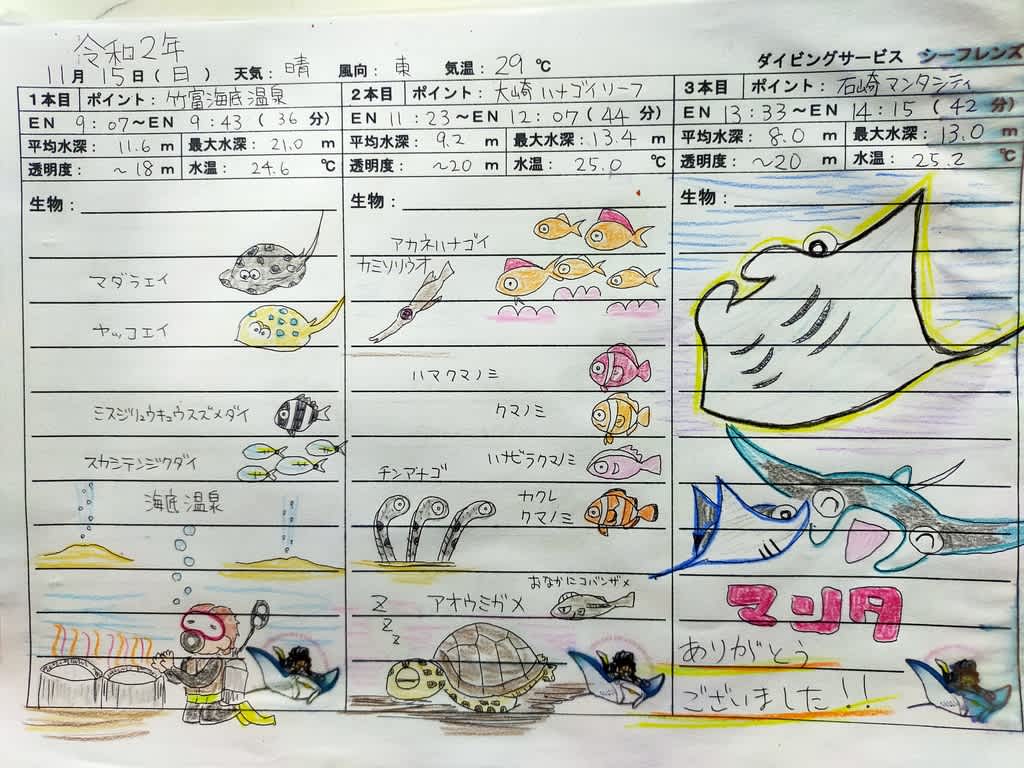 令和2年
11月 15日(日) 天気:晴 風向:東 気温:29℃ ダイビングサービス シーフレンズ
1本目 ポイント:竹富海底温泉
EN 9:07~EN 9:43(36分)
平均水深:11.6m 最大水深:21.0m
透明度:~18m 水温:24.6℃
生物:
マダラエイ
ヤッコエイ
ミスジリュウキュウスズメダイ
スカシテンジクダイ
海底温泉
2本目 ポイント:大崎ハナゴイリーフ
EN 11:23~EN 12:07(44分)
平均水深:9.2m 最大水深:13.4m
透明度:~20m 水温:25.0℃
生物:
アカネハナゴイ
カミソリウオ
ハマクマノミ
クマノミ
ハナビラクマノミ
チンアナゴ
カクレ
クマノミ
おなかにコバンザメ
アオウミガメ
Z
Z
Z
3本目 ポイント:石崎マンタシティ
EN 13:33~EN 14:15(42分)
平均水深:8.0m 最大水深:13.0m
透明度:~20m 水温:25.2℃
生物:
マンタ
ありがとう
ございました!!